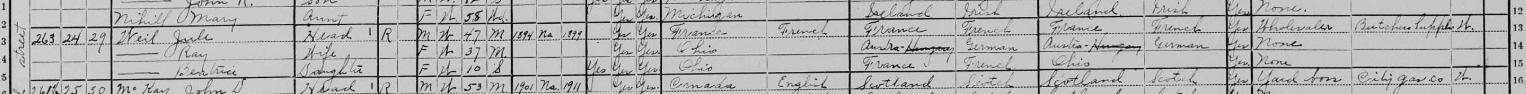 1 John R. Son
2 Nihill Mary Aunt F W 58 Wd. Yes Yes Michigan Ireland Irish Ireland Irish Yes None. 12
3 263 24 29 Weil Jule Head 1 R M W 47 M 1894 Na 1899 Yes Yes France French France French France French Yes Wholesaler Butchers Supplies W. 13
4 —— Ray Wife F W 37 M Yes Yes Ohio Austra-Hungary German Austra-Hungary German Yes None 14
5 —— Beatrice Daughter F W 10 S Yes Yes Yes Ohio France French Ohio Yes None 15
25 30 McKay John D Head 1 R M W 53 M 1901 Na 1911 Yes Yes Canada English Scotland Scotch Scotland Scotch Yes Yard boss City gas co W. 16
street